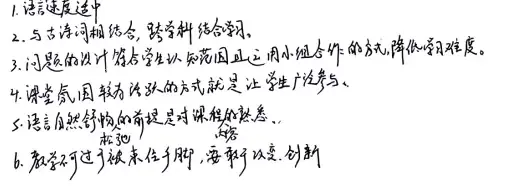 1. 语言速度适中
2. 与古诗词相结合，跨学科结合学习。
3. 问题的设计符合学生认知范围且运用小组合作的方式，降低学习难度。
4. 课堂氛围较为活跃的方式就是让学生广泛参与。
5. 语言自然舒畅的前提是对课程的熟悉。
松弛 内容
6. 教学不可过于被束住手脚，要敢于改变、创新